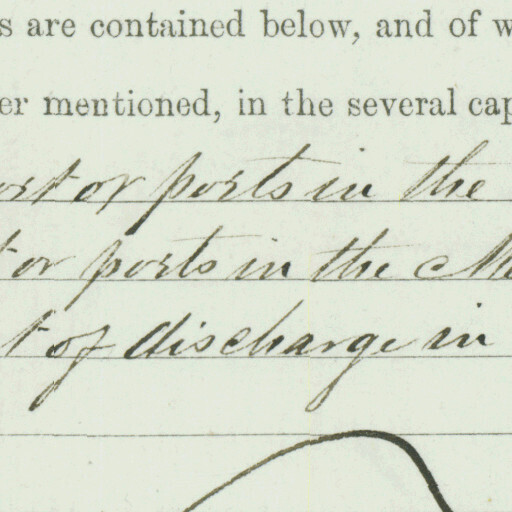 s are contained below, and of w
er mentioned, in the several cap
ort or ports in the
t or ports in the M
t of discharge in